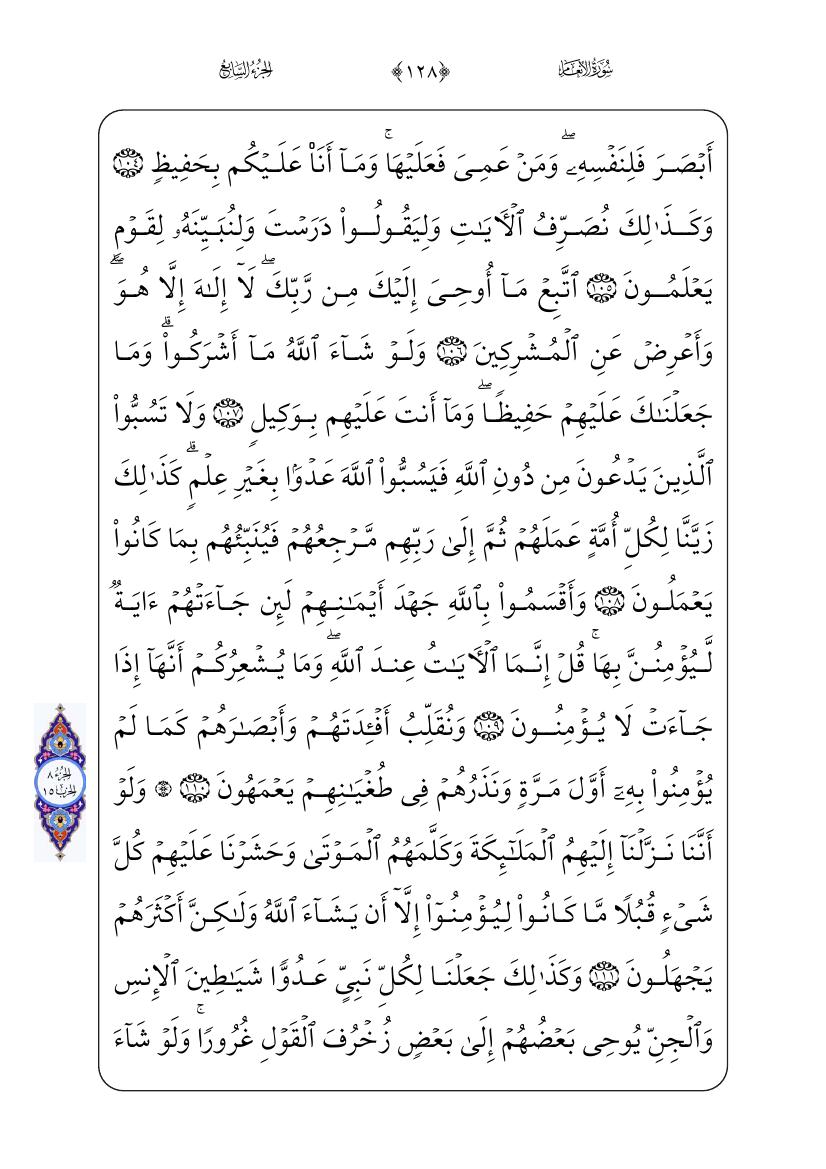 سُورَةُ الأَنْعَام ﴿١٢٨﴾ الجُزْءُ السَّابِع
أَبۡصَرَ فَلِنَفۡسِهِۦۖ وَمَنۡ عَمِيَ فَعَلَيۡهَاۚ وَمَآ أَنَا۠ عَلَيۡكُم بِحَفِيظٖ ١٠٤
وَكَذَٰلِكَ نُصَرِّفُ ٱلۡأٓيَٰتِ وَلِيَقُولُواْ دَرَسۡتَ وَلِنُبَيِّنَهُۥ لِقَوۡمٖ
يَعۡلَمُونَ ١٠٥ ٱتَّبِعۡ مَآ أُوحِيَ إِلَيۡكَ مِن رَّبِّكَۖ لَآ إِلَٰهَ إِلَّا هُوَۖ
وَأَعۡرِضۡ عَنِ ٱلۡمُشۡرِكِينَ ١٠٦ وَلَوۡ شَآءَ ٱللَّهُ مَآ أَشۡرَكُواْۗ وَمَا
جَعَلۡنَٰكَ عَلَيۡهِمۡ حَفِيظٗاۖ وَمَآ أَنتَ عَلَيۡهِم بِوَكِيلٖ ١٠٧ وَلَا تَسُبُّواْ
ٱلَّذِينَ يَدۡعُونَ مِن دُونِ ٱللَّهِ فَيَسُبُّواْ ٱللَّهَ عَدۡوَۢا بِغَيۡرِ عِلۡمٖۗ كَذَٰلِكَ
زَيَّنَّا لِكُلِّ أُمَّةٍ عَمَلَهُمۡ ثُمَّ إِلَىٰ رَبِّهِم مَّرۡجِعُهُمۡ فَيُنَبِّئُهُم بِمَا كَانُواْ
يَعۡمَلُونَ ١٠٨ وَأَقۡسَمُواْ بِٱللَّهِ جَهۡدَ أَيۡمَٰنِهِمۡ لَئِن جَآءَتۡهُمۡ ءَايَةٞ
لَّيُؤۡمِنُنَّ بِهَاۚ قُلۡ إِنَّمَا ٱلۡأٓيَٰتُ عِندَ ٱللَّهِۖ وَمَا يُشۡعِرُكُمۡ أَنَّهَآ إِذَا
جَآءَتۡ لَا يُؤۡمِنُونَ ١٠٩ وَنُقَلِّبُ أَفۡـِٔدَتَهُمۡ وَأَبۡصَٰرَهُمۡ كَمَا لَمۡ
يُؤۡمِنُواْ بِهِۦٓ أَوَّلَ مَرَّةٖ وَنَذَرُهُمۡ فِي طُغۡيَٰنِهِمۡ يَعۡمَهُونَ ١١٠ ۞ وَلَوۡ
أَنَّنَا نَزَّلۡنَآ إِلَيۡهِمُ ٱلۡمَلَٰٓئِكَةَ وَكَلَّمَهُمُ ٱلۡمَوۡتَىٰ وَحَشَرۡنَا عَلَيۡهِمۡ كُلَّ
شَيۡءٖ قُبُلٗا مَّا كَانُواْ لِيُؤۡمِنُوٓاْ إِلَّآ أَن يَشَآءَ ٱللَّهُ وَلَٰكِنَّ أَكۡثَرَهُمۡ
يَجۡهَلُونَ ١١١ وَكَذَٰلِكَ جَعَلۡنَا لِكُلِّ نَبِيٍّ عَدُوّٗا شَيَٰطِينَ ٱلۡإِنسِ
وَٱلۡجِنِّ يُوحِي بَعۡضُهُمۡ إِلَىٰ بَعۡضٖ زُخۡرُفَ ٱلۡقَوۡلِ غُرُورٗاۚ وَلَوۡ شَآءَ
الجزء ٨
الحزب ١٥